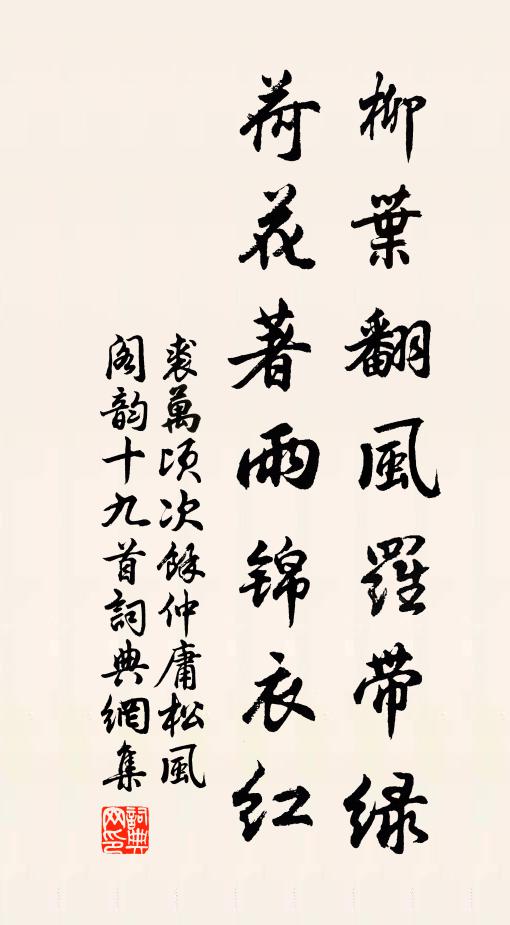 柳葉翻風羅帶绿
荷花著雨锦衣红
裘萬頃次餘仲庸松風
阁韵十九首詞典網集
詞典网印